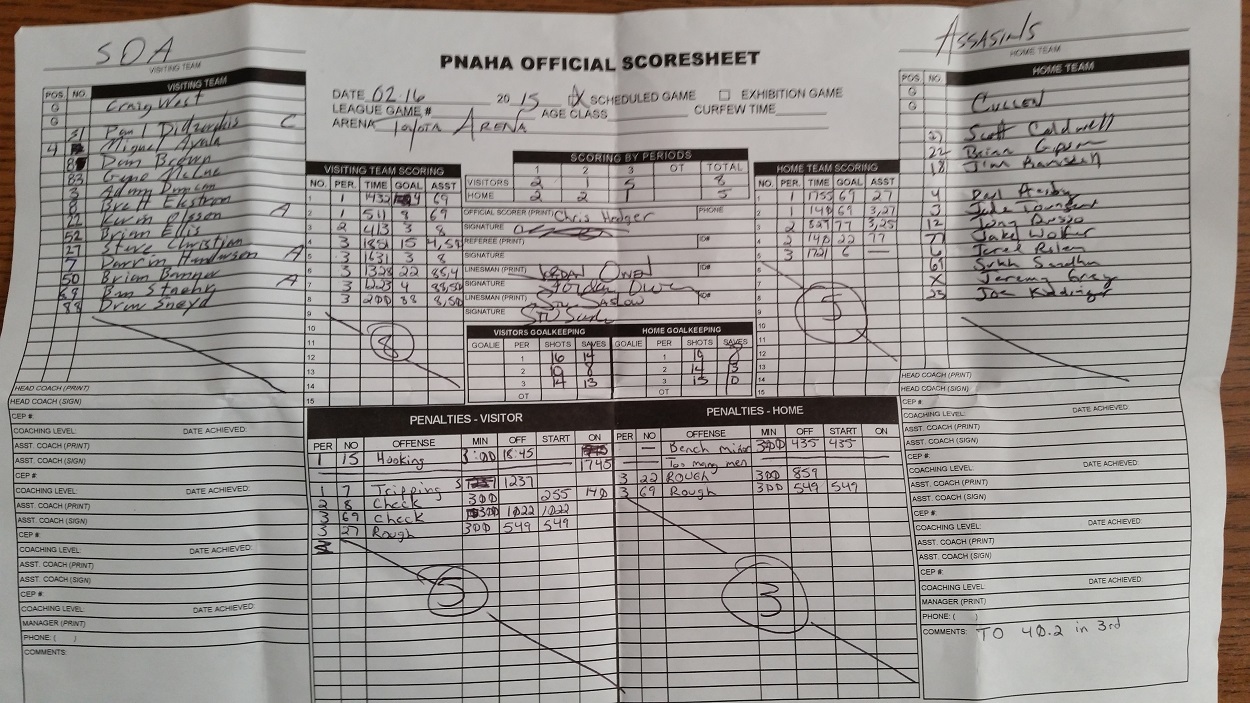 SDA
VISITING TEAM
PNAHA OFFICIAL SCORESHEET
Assasins
HOME TEAM
DATE 02.16 2015 X SCHEDULED GAME EXHIBITION GAME
LEAGUE GAME # AGE CLASS CURFEW TIME
ARENA Toyota Arena
VISITING TEAM
POS. NO.
G Craig West
G
G
31 Paul C
4 Miguel Ayala
8 Dan Brown
83 Gene
3 Adam Duncan
8 Brett Ekstrom
22 Kevin Olsson A
Brian Ellis
52 Steve Christian
27 Darrin Henderson A
7 Brian A
50 Ben Staehr
69 Drew Sneyd
88
HOME TEAM
POS. NO.
G Cullen
G
G
27 Scott Caldwell
22 Brian
18 Jim
4 Paul
3 Jude Townsend
12 Tony Russo
77 Jake Walker
6 Jared Riley
69 Sukh Sandhu
X Jeremy Gray
23 Joe Kiddinger
SCORING BY PERIODS
1 2 3 OT TOTAL
VISITORS 2 1 5 8
HOME 2 2 1 5
OFFICIAL SCORER (PRINT) Chris Hedger PHONE
SIGNATURE
REFEREE (PRINT) ID#
SIGNATURE
LINESMAN (PRINT) Jordan Owen ID#
SIGNATURE Jordan Owen
LINESMAN (PRINT) Stu Saslow ID#
SIGNATURE
VISITING TEAM SCORING
NO. PER. TIME GOAL ASST
1 1 1432 4 69
2 1 511 8 69
3 2 413 3 8
4 3 1851 15 4,52
5 3 1631 3 8
6 3 1328 22 88,4
7 3 1223 4 88,50
8 3 200 88 8,50
9
10
11
12
13
14
15
8
HOME TEAM SCORING
NO. PER. TIME GOAL ASST
1 1 1755 69 27
2 1 140 69 3,27
3 2 527 77 3,25
4 2 140 22 77
5 3 1721 6 —
6
7
8
9
10
11
12
13
14
15
5
VISITORS GOALKEEPING
GOALIE PER SHOTS SAVES
1 16 14
2 10 8
3 14 13
OT
HOME GOALKEEPING
GOALIE PER SHOTS SAVES
1 8
2 14 13
3 15 10
OT
PENALTIES - VISITOR
PER NO OFFENSE MIN OFF START ON
1 15 Hooking 3:00 18:45 1745
1 7 Tripping 1237
2 8 Check 300 255 140
3 69 Check 300 1022 1022
3 27 Rough 300 549 549
5
PENALTIES - HOME
PER NO OFFENSE MIN OFF START ON
— Bench minor 300 435 435
— Too many men
3 22 Rough 300 859
3 69 Rough 300 549 549
3
HEAD COACH (PRINT)
HEAD COACH (SIGN)
CEP #:
COACHING LEVEL: DATE ACHIEVED:
ASST. COACH (PRINT)
ASST. COACH (SIGN)
CEP #:
COACHING LEVEL: DATE ACHIEVED:
ASST. COACH (PRINT)
ASST. COACH (SIGN)
CEP #:
COACHING LEVEL: DATE ACHIEVED:
ASST. COACH (PRINT)
ASST. COACH (SIGN)
CEP #:
COACHING LEVEL: DATE ACHIEVED:
MANAGER (PRINT)
PHONE: ( )
COMMENTS:
HEAD COACH (PRINT)
HEAD COACH (SIGN)
CEP #:
COACHING LEVEL: DATE ACHIEVED:
ASST. COACH (PRINT)
ASST. COACH (SIGN)
CEP #:
COACHING LEVEL: DATE ACHIEVED:
ASST. COACH (PRINT)
ASST. COACH (SIGN)
CEP #:
COACHING LEVEL: DATE ACHIEVED:
ASST. COACH (PRINT)
ASST. COACH (SIGN)
CEP #:
COACHING LEVEL: DATE ACHIEVED:
MANAGER (PRINT)
PHONE: ( )
COMMENTS: TO 40.2 in 3rd